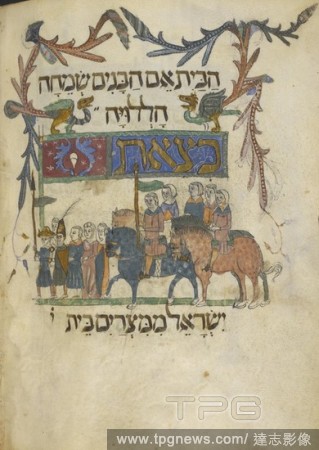 הַבַּיִת אֵם הַבָּנִים שְׂמֵחָה
הַלְלוּיָהּ
בצאת
יִשְׂרָאֵל מִמִּצְרַיִם בֵּית י
TPG
www.tpgnews.com/ 達志影像